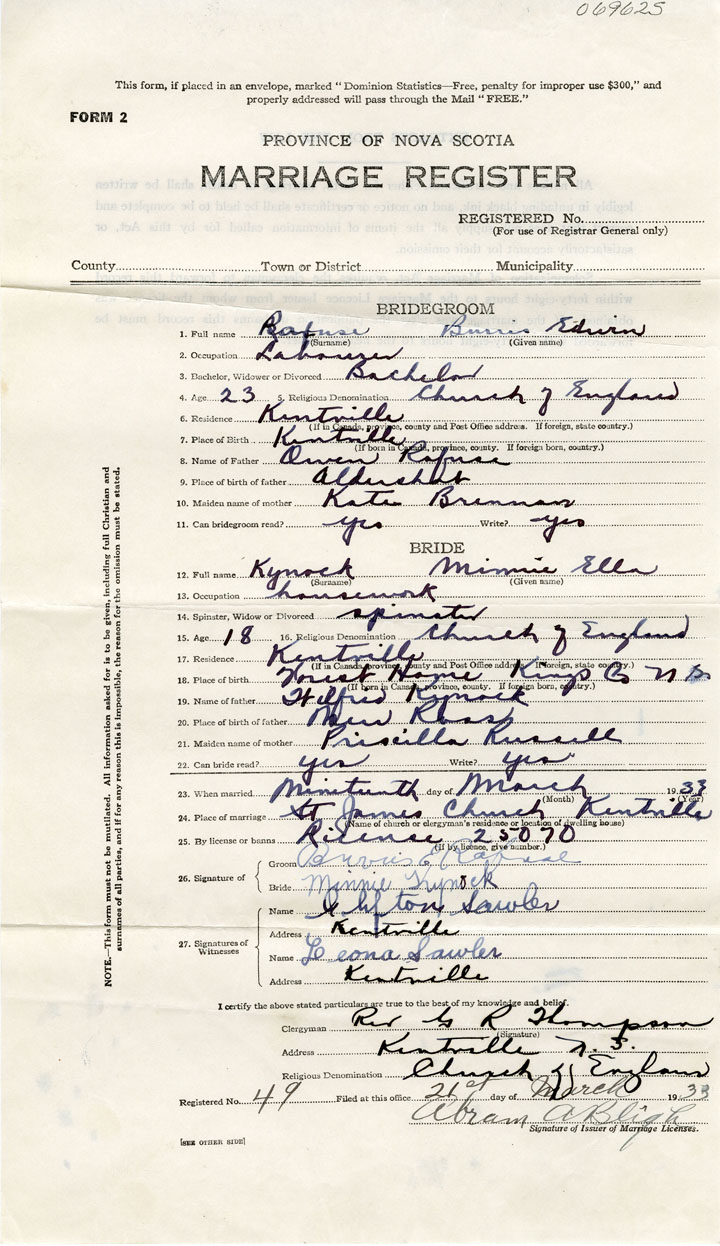 069625
This form, if placed in an envelope, marked "Dominion Statistics—Free, penalty for improper use $300," and
properly addressed will pass through the Mail "FREE."
FORM 2
PROVINCE OF NOVA SCOTIA
MARRIAGE REGISTER
REGISTERED No.
(For use of Registrar General only)
County Town or District Municipality
BRIDEGROOM
1. Full name Rafuse Burris Edwin
(Surname) (Given name)
2. Occupation Labourer
3. Bachelor, Widower or Divorced Bachelor
4. Age 23 5. Religious Denomination Church of England
6. Residence Kentville
(If in Canada, province, county and Post Office address. If foreign, state country.)
7. Place of Birth Kentville
(If born in Canada, province, county. If foreign born, country.)
8. Name of Father Owen Rafuse
9. Place of birth of father Aldershot
10. Maiden name of mother Kate Brennan
11. Can bridegroom read? yes Write? yes
BRIDE
12. Full name Kynock Minnie Ella
(Surname) (Given name)
13. Occupation housework
14. Spinster, Widow or Divorced spinster
15. Age 18 16. Religious Denomination Church of England
17. Residence Kentville
(If in Canada, province, county and Post Office address. If foreign, state country.)
18. Place of birth Forest Home Kings Co N S
(If born in Canada, province, county. If foreign born, country.)
19. Name of father Wilfred Kynock
20. Place of birth of father New Ross
21. Maiden name of mother Priscilla Russell
22. Can bride read? yes Write? yes
23. When married Nineteenth day of March 1933
(Month) (Year)
24. Place of marriage St James Church Kentville
(Name of church or clergyman's residence or location of dwelling house)
25. By license or banns License 25070
(If by licence, give number.)
26. Signature of
Groom Burris E Rafuse
Bride Minnie Kynock
27. Signatures of Witnesses
Name Clifton Sawler
Address Kentville
Name Leona Sawler
Address Kentville
I certify the above stated particulars are true to the best of my knowledge and belief.
Clergyman Rev G R Thompson
(Signature)
Address Kentville N.S.
Religious Denomination Church of England
Registered No. 49 Filed at this office 21st day of March 1933
Abram A Bligh
Signature of Issuer of Marriage Licenses.
[SEE OTHER SIDE]
NOTE.—This form must not be mutilated. All information asked for is to be given, including full Christian and
surnames of all parties, and if for any reason this is impossible, the reason for the omission must be stated.